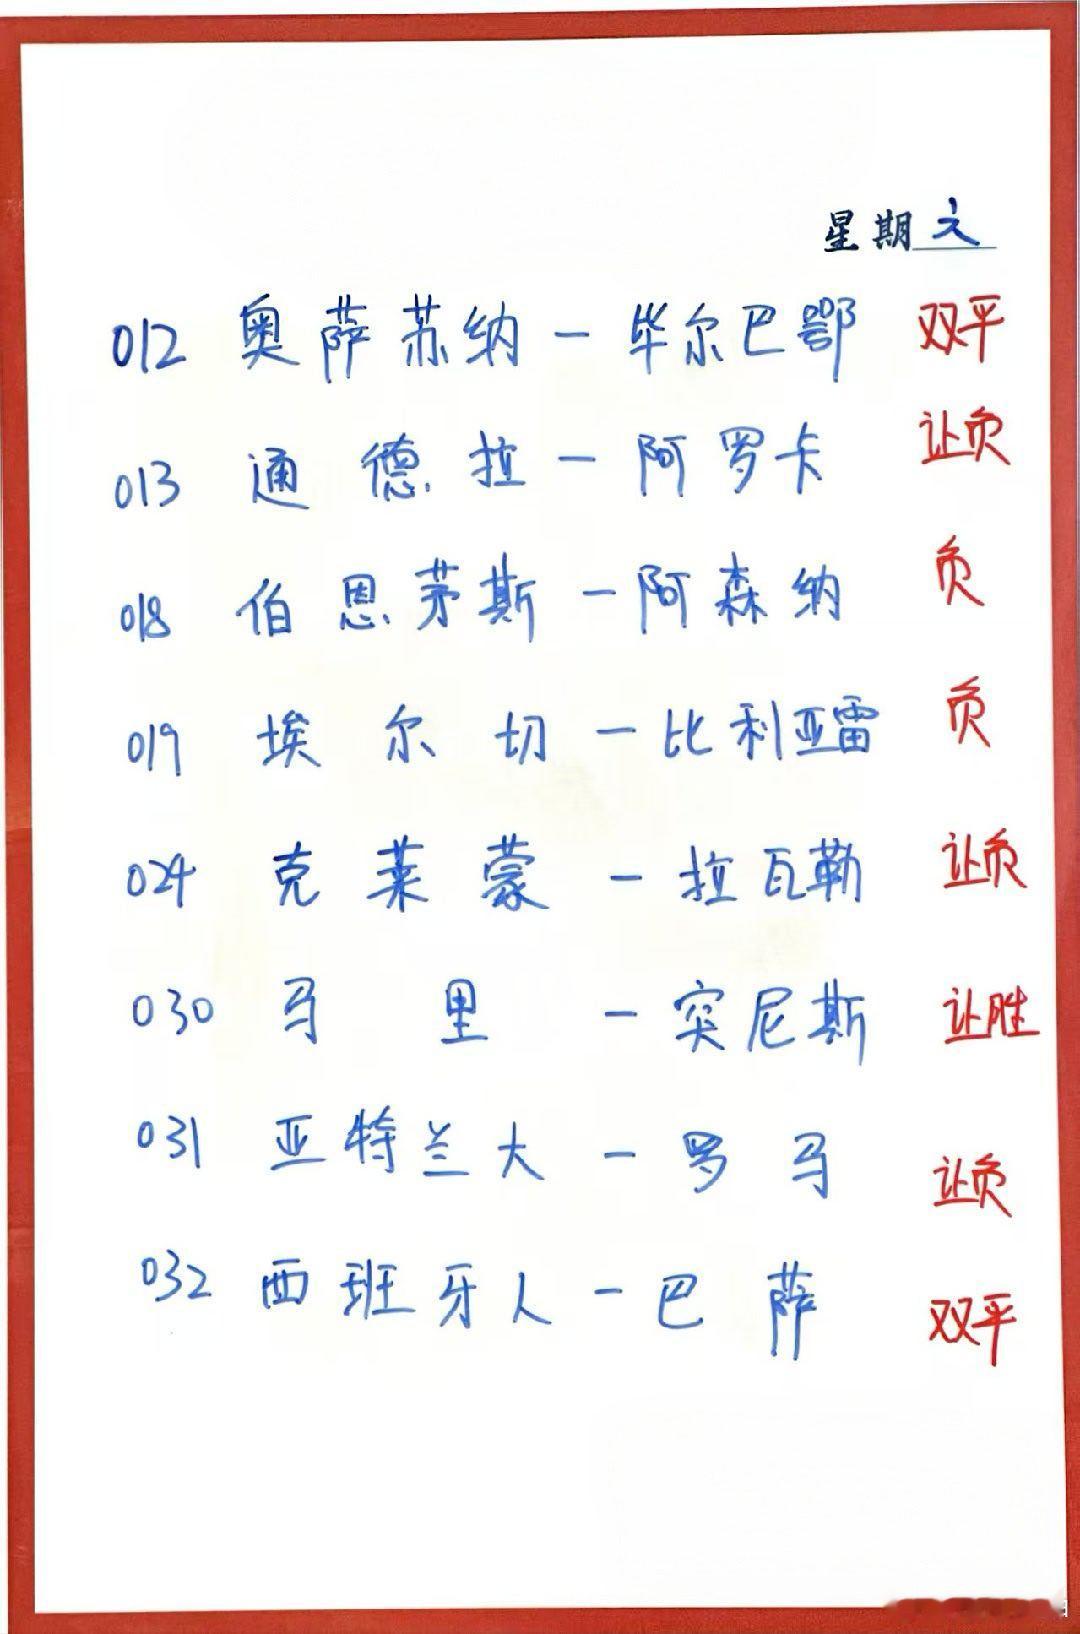 星期六
012 奥萨苏纳－毕尔巴鄂 双平
013 通德拉－阿罗卡 让负
018 伯恩茅斯－阿森纳 负
019 埃尔切－比利亚雷 负
024 克莱蒙－拉瓦勒 让负
030 马里－突尼斯 让胜
031 亚特兰大－罗马 让负
032 西班牙人－巴萨 双平